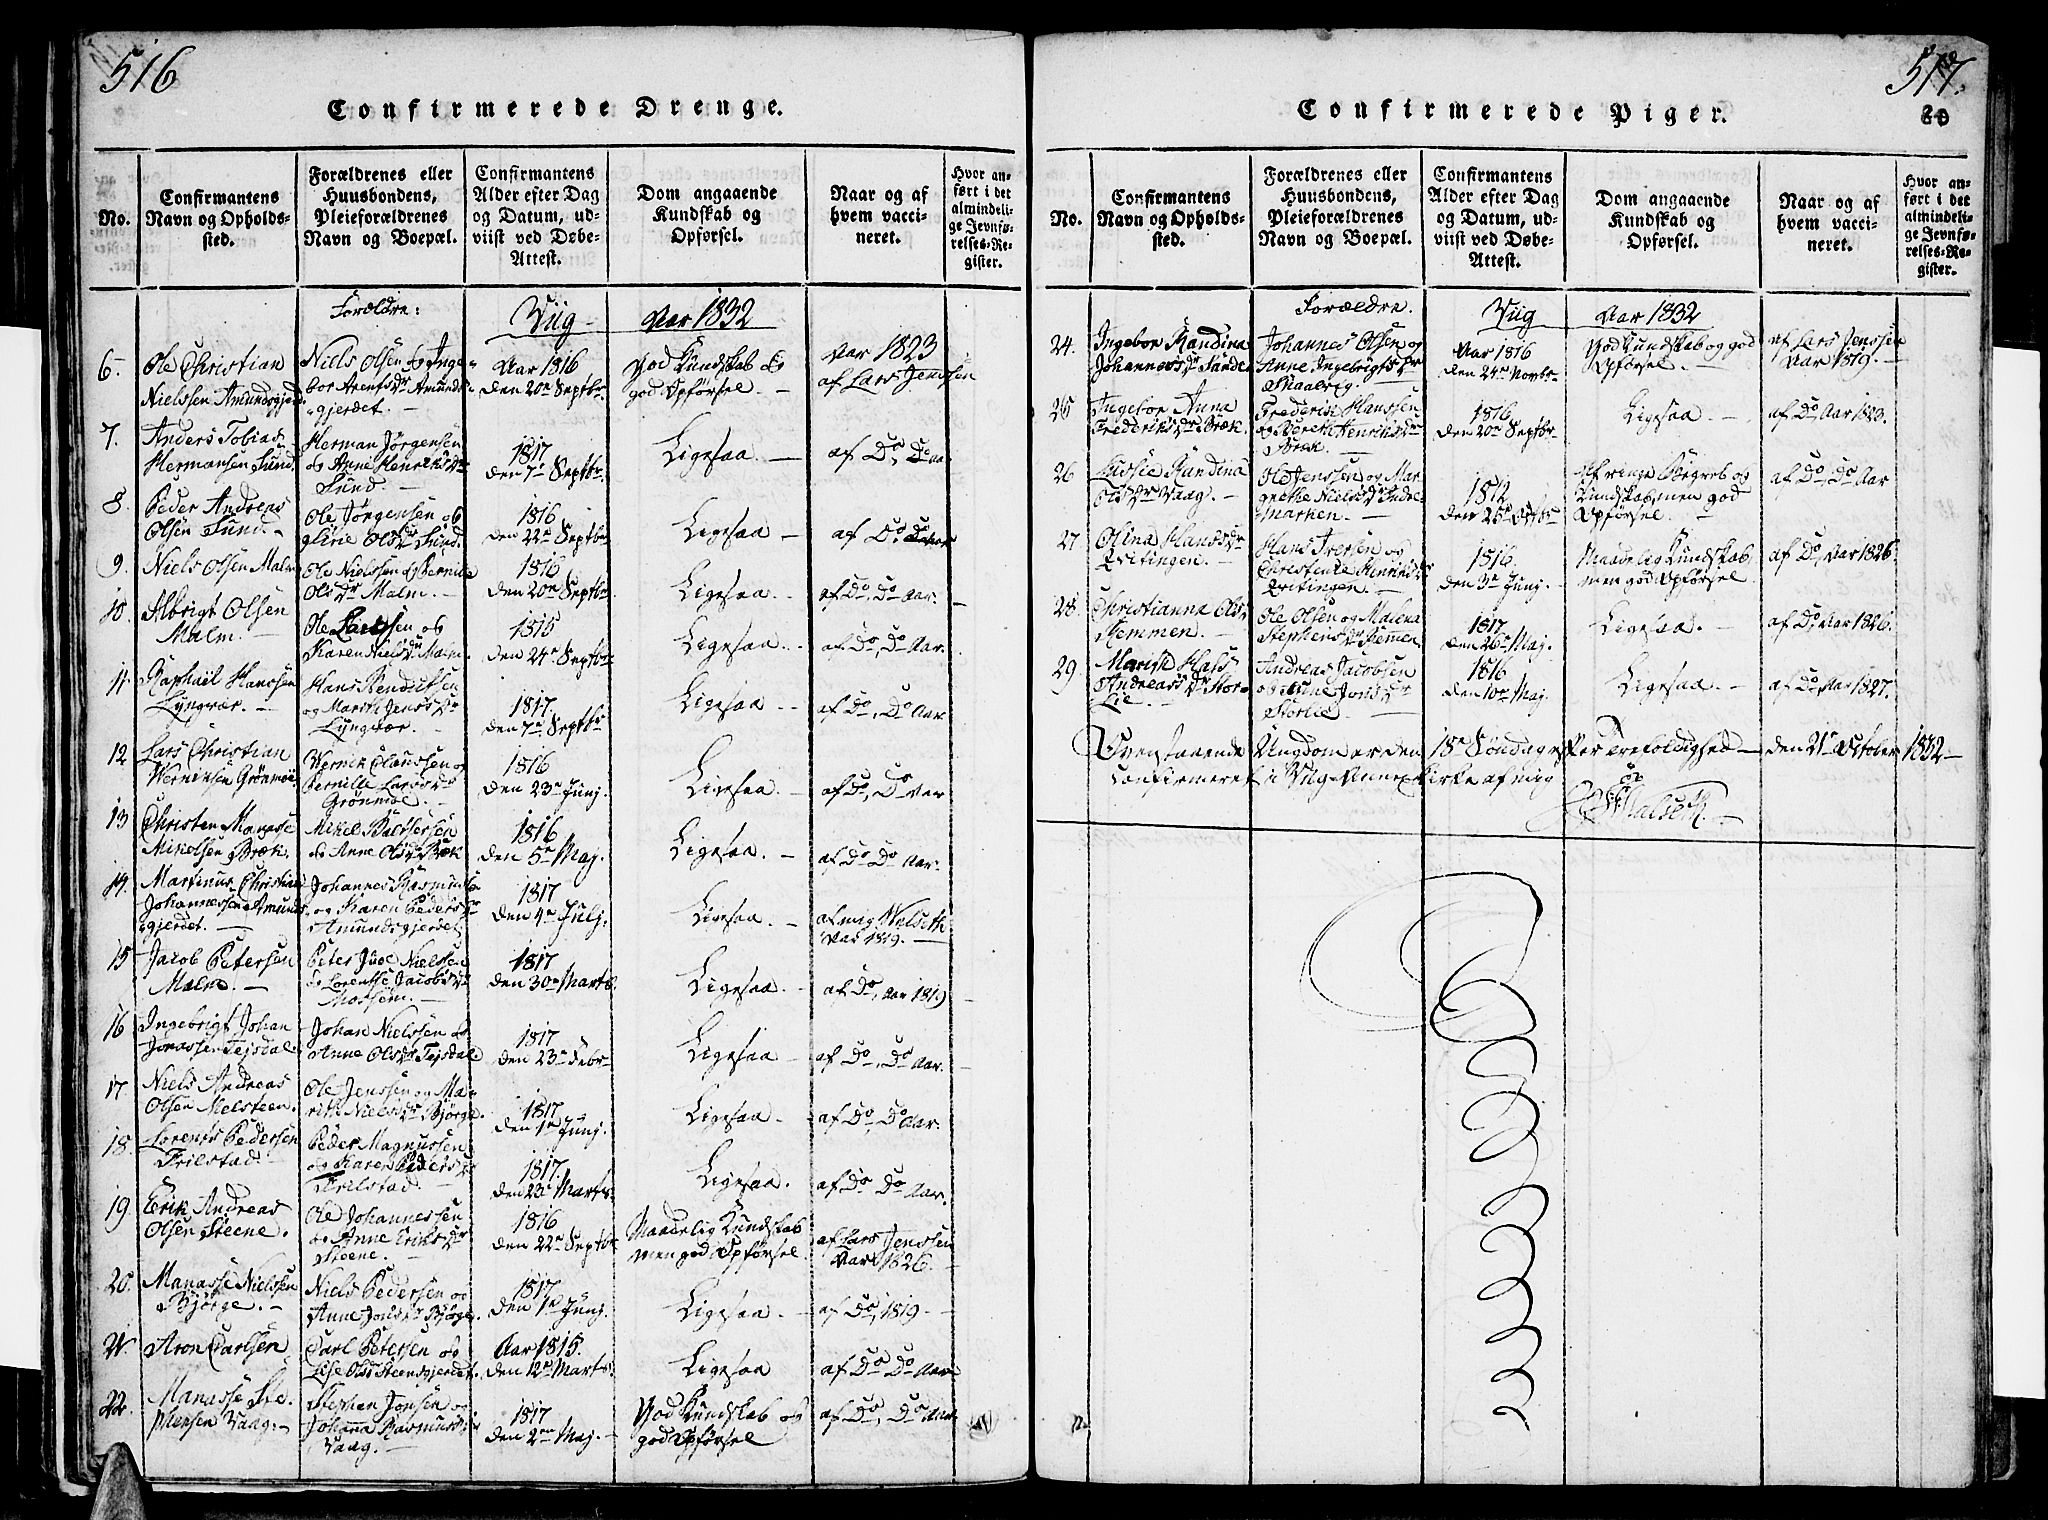 516
Confirmerede Drenge.
No.
Confirmantens
Navn og Opholds-
sted.
Forældrenes eller
Huusbondens,
Pleieforældrenes
Navn og Boepæl.
Confirmantens
Alder efter Dag
og Datum, ud-
viist ved Døbe-
Attest.
Dom angaaende
Kundskab og
Opførsel.
Naar og af
hvem vacci-
neret.
Hvor an-
ført i det
almindeli-
ge Jevnfø-
relses-Re-
gister.
Forældre:
Viig
Aar 1832
6.
Ole Christian
Nielssen Amundsgjerd.
Niels Olsen og Inge-
bor Arentsdr Amunds-
gjerdet.
Aar 1816
den 20de Septbr.
God Kundskab og
god Opførsel
Aar 1823
af Lars Jenssen
7.
Anders Tobias
Hermansen Sund
Herman Jørgensen
og Anne Henriksdr
Sund.
1817
den 7de Septbr.
Ligesaa.
af Do, Do Aar
8.
Peder Andreas
Olsen Sund.
Ole Jørgensen og
Olsdr Sund.
1816
den 22de Septbr
Ligesaa
af Do, Do Aar
9.
Niels Olsen Malm
Ole Nielssen og Pernille
Olsdr Malm.
1816
den 20de Septbr.
Ligesaa.
af Do, Do Aar.
10.
Albrigt Olsen
Malm.
Ole Larssen og
Karen Nielsdr Malm.
1815
den 24de Septbr
Ligesaa.
af Do, Do Aar.
11.
Raphail Hanssen
Lyngvær.
Hans Bendictsen
og Marith Jensdr
Lyngvær.
1817.
den 7de Septbr
Ligesaa
af Do, Do Aar
12
Lars Christian
Werniksen Grønmoe
Wernik Claussen og
Pernille Larsdr
Grønmoe.
1816
den 23de Junj.
Ligesaa.
af Do, Do Aar
13
Christen Manasse
Mikelsen Bræk.
Mikel Baltsersen
og Anne Olsdr Bræk
1816
den 5te Maj.
Ligesaa.
af Do Do Aar.
14.
Martinus Christian
Johannessen Amunds-
gjerdet.
Johannes Rasmussen
og Karen Pedersdr
Amundsgjerdet.
1817
den 4de Julj.
Ligesaa
af mig Walseth
Aar 1819.
15
Jacob Petersen
Malm.
Peter Juel Nielssen
og Lorentse Jacobsdr
Mossem.
1817
den 30de Marts.
Ligesaa
af Do, Aar 1819
16
Ingebrigt Johan
Johanssen Tejsdal
Johan Nielssen og
Anne Olsdr Tejsdal
1817
den 23de Febr
Ligesaa
af Do, Do Aar.
17.
Niels Andreas
Olsen Melsteen.
Ole Jenssen og Ma-
rith Nielsdr Bjørge.
1817
den 1te Junj.
Ligesaa
af Do, Do Aar.
18.
Lorents Pedersen
Frilstad.
Peder Magnussen
og Karen Pedersdr
Frilstad.
1817.
den 23de Marts
Ligesaa.
af Do Do Aar.
19.
Erik Andreas
Olsen Steene.
Ole Johannessen
og Anne Eriksdr
Steene.
1816
den 22de Septbr
Maadelig Kundskab
men god Opførsel
af Lars Jenssen
Aar 1826.
20.
Manasse Nielssen
Bjørge.
Niels Pedersen og
Anne Jonsdr Bjørge.
1817
den 1te Junj.
Ligesaa.
af Do, 1819
21.
Aron Carlsen
Carl Petersen og
Else Olsd Steensgjerdet.
Aar 1815.
den 12te Marts.
Ligesaa
af Do Do Aar
22.
Manasse Ste-
phensen Vaag.
Stephen Jonsen og
Johanna Rasmusdr
Vaag.
1817
den 2den Maj.
God Kundskab og
god Opførsel
af Do, Do Aar.
517.
80
Confirmerede Piger.
No.
Confirmantens
Navn og Opholds-
sted.
Forældrenes eller
Huusbondens,
Pleieforældrenes
Navn og Boepæl.
Confirmantens
Alder efter Dag
og Datum, ud-
viist ved Døbe-
Attest.
Dom angaaende
Kundskab og
Opførsel.
Naar og af
hvem vacci-
neret.
Hvor an-
ført i det
almindeli-
ge Jevnfø-
relses-Re-
gister.
Forældre.
Viig
Aar 1832
24.
Ingebor Randina
Johannesdr Sande
Johannes Olsen og
Anne Ingebrigtsdr
Aar 1816
den 24de Novbr.
God Kundskab og god
Opførsel.
af Lars Jenssen
Aar 1819.
25
Ingebor Anna
Frederiksdr Bræk.
Frederik Hanssen
og Bereth Henriksdr
Bræk.
1816
den 20de Septbr.
Ligesaa
af Do Aar 1823.
26
Randina
Olsdr Vaag.
Ole Jenssen og Mar-
grethe Nielsdr Inde-
marken.
1812
den 25de Octbr
Af ringe Begreb og
Kundskab, men god
Opførsel.
af Do, Do Aar
27
Olina Hansdr
Qvitingen.
Hans Iversen og
Christence Henriksdr
Qvitingen.
1816.
den 3de Junj.
Maadelig Kundskab
men god Opførsel.
af Do, Aar 1826.
28.
Christianna Olsdr
Hemmen.
Ole Olsen og Malena
Stephensdr Hemen
1817
den 26de Maj.
Ligesaa.
af Do, Aar 1826.
29.
Marith Hass
Andreasdr Stor-
Lie.
Andreas Jacobsen
og Ane Jonsdr
Storlie.
1816
den 10de Maj.
Ligesaa.
af Do, Aar 1827.
Ovenstaaende Ungdom er den 18de Søndag efter Trefoldighed den 21de October 1832
confirmeret i Viig Annex Kirke af mig
Walseth.